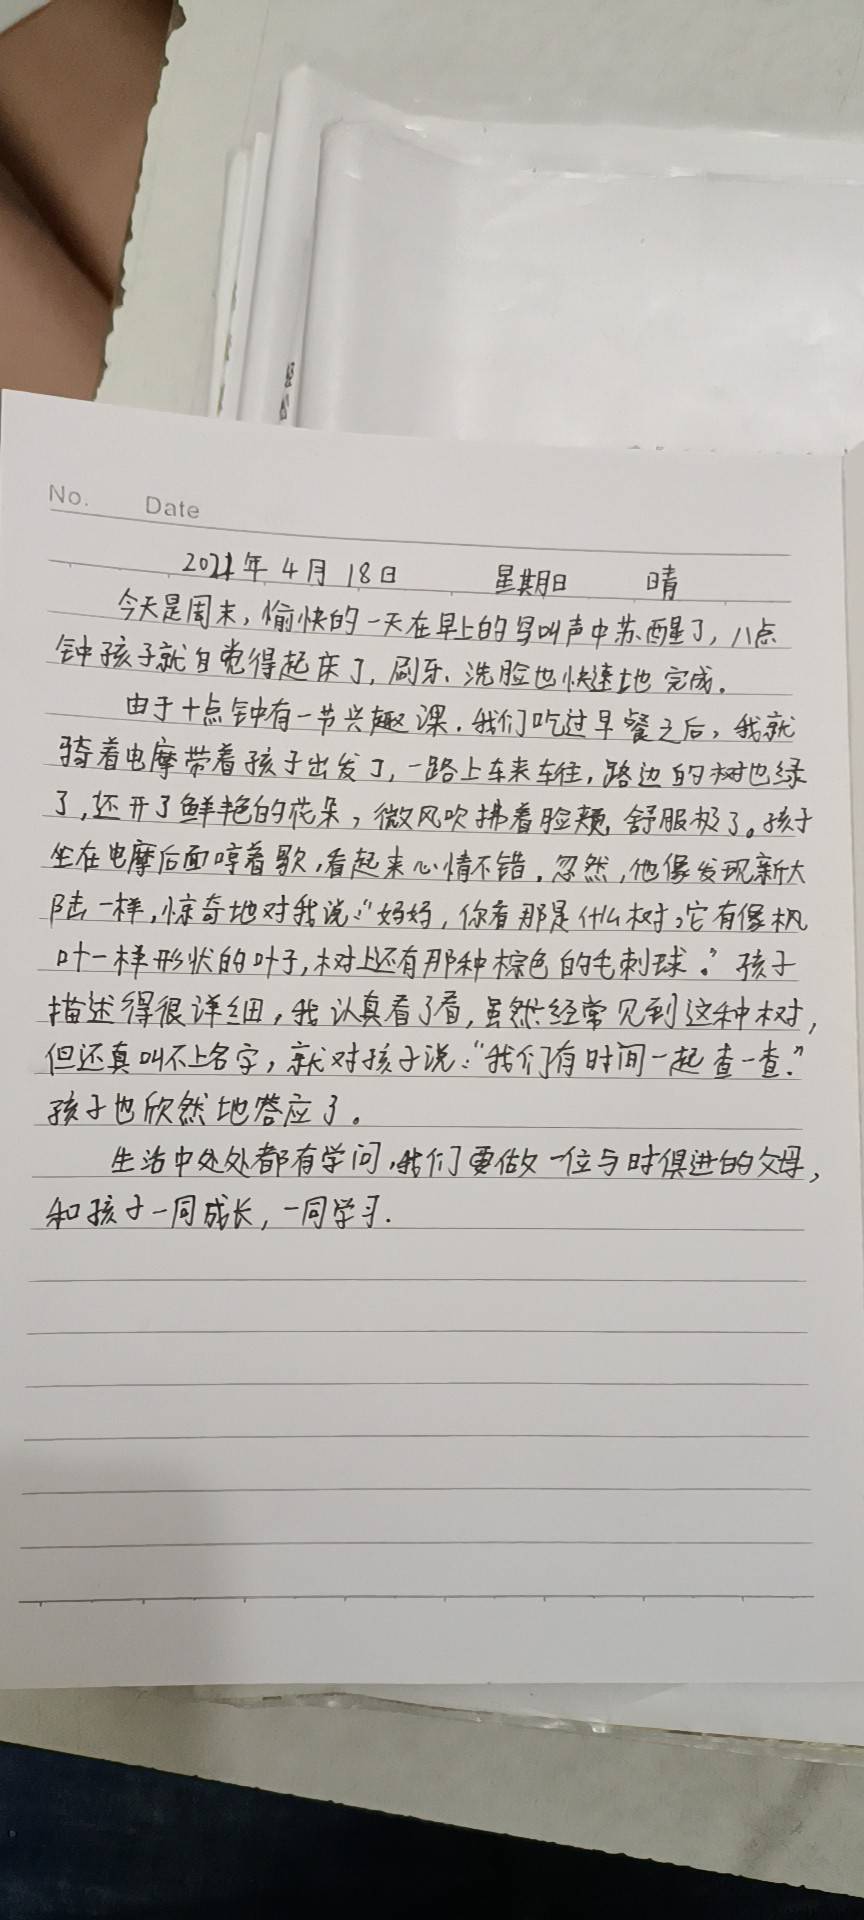 No. Date
2021年4月18日 星期日 晴
今天是周末,愉快的一天在早上的鸟叫声中苏醒了,八点
钟孩子就自觉得起床了,刷牙、洗脸也快速地完成.
由于十点钟有一节兴趣课.我们吃过早餐之后,我就
骑着电摩带着孩子出发了,一路上车来车往,路边的树也绿
了,还开了鲜艳的花朵,微风吹拂着脸颊,舒服极了。孩子
坐在电摩后面哼着歌,看起来心情不错.忽然,他像发现新大
陆一样,惊奇地对我说:“妈妈,你看那是什么树,它有像枫
叶一样形状的叶子,树上还有那种棕色的毛刺球。”孩子
描述得很详细,我认真看了看,虽然经常见到这种树,
但还真叫不上名字,就对孩子说:“我们有时间一起查一查.”
孩子也欣然地答应了。
生活中处处都有学问,我们要做一位与时俱进的父母,
和孩子一同成长,一同学习.